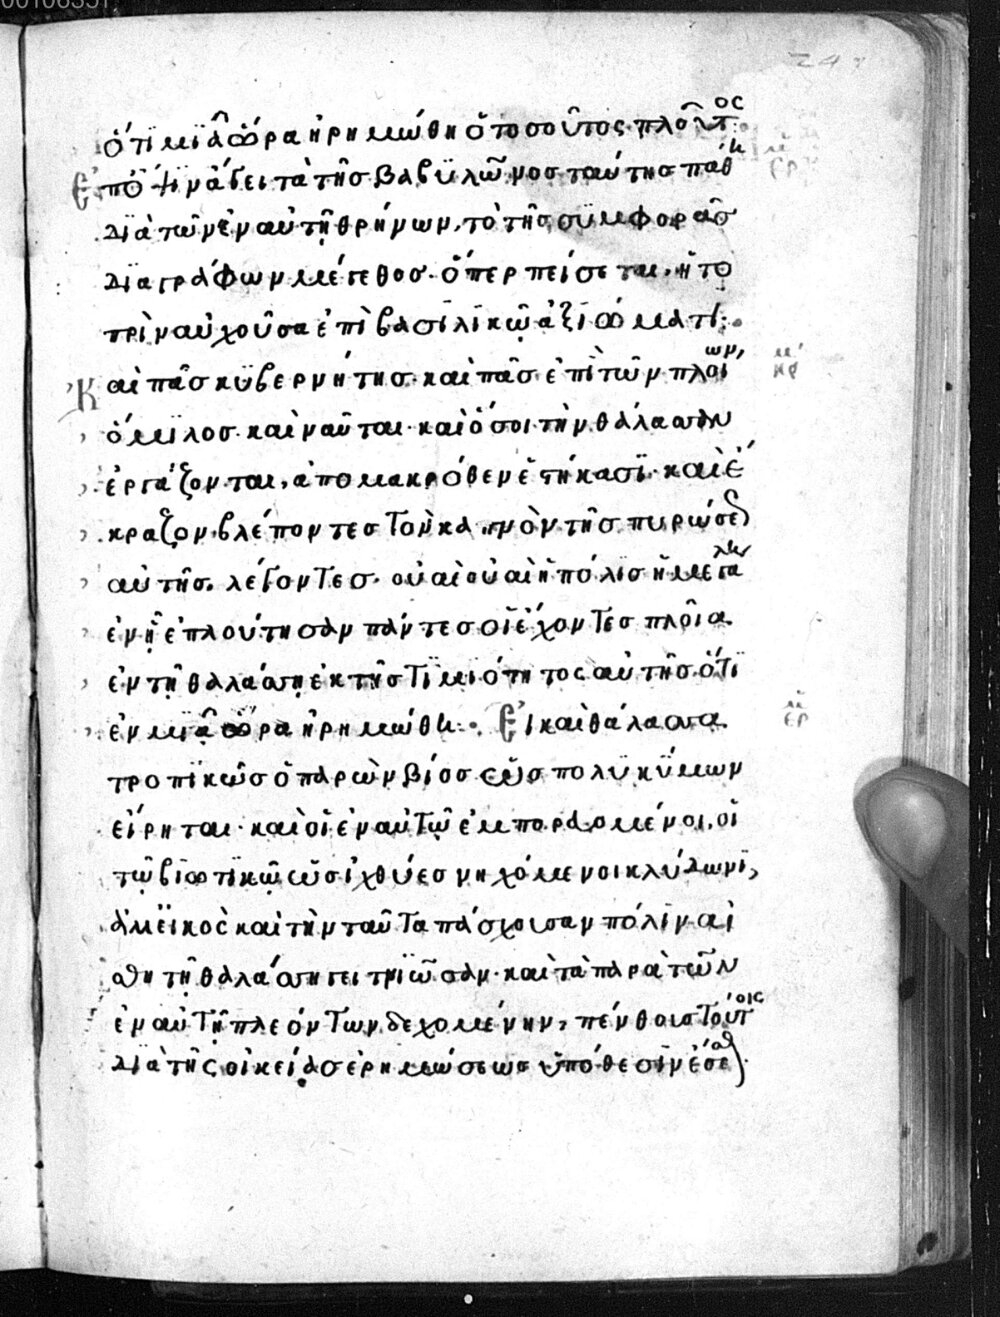 00106351
247
ὅτι μϊᾷ ὥρα ἠρημώθη ὁ τοσοῦτος πλοῦτος:
Ἐπόψιν ἄγει τὰ τῆς βαβυλῶνος ταύτης πάθη
διὰ τῶν ἐν αὐτῇ θρήνων, τὸ τῆς συμφορᾶς
διαγράφων μέγεθος· ὅπερ πείσεται, ἡ τὸ
πρὶν αὐχοῦσα ἐπὶ βασιλικῷ ἀξιώματι:
Καὶ πᾶς κυβερνήτης· καὶ πᾶς ἐπὶ τῶν πλοίων,
ὅμιλος· καὶ ναῦται· καὶ ὅσοι τὴν θάλασσαν
ἐργάζονται, ἀπομακρόθεν ἔστηκασϊ· καὶ ἔ
κραζον βλέποντες τὸν καπνὸν τῆς πυρώσεως
αὐτῆς. λέγοντες· οὐαὶ οὐαὶ ἡ πόλις ἡ μεγάλη
ἐν ᾗ ἐπλούτησαν πάντες οἱ ἔχοντες πλοῖα
ἐν τῇ θαλάσσῃ ἐκ τῆς τϊμιότητος αὐτῆς· ὅτϊ
ἐν μϊᾷ ὥρα ἠρημώθη:· Εἰ καὶ θάλασσα
τροπικῶς ὁ παρὼν βίος ὡς πολυκύμων
εἴρηται· καὶ οἱ ἐν αὐτῷ ἐμπορευόμενοι, οἱ
τῷ βιωτικῷ ὡς ἰχθύες νηχόμενοι κλύδωνϊ,
ἀλλ' εἰκὸς καὶ τὴν ταῦτα πάσχουσαν πόλιν αἰ
σθητῇ θαλάσσῃ γειτνιῶσαν· καὶ τὰ παρὰ τῶν
ἐν αὐτῇ πλεόντων δεχομένην, πένθους τούτοις
διὰ τῆς οἰκείας ἐρημώσεως ὑπόθεσιν ἔσεσθαι